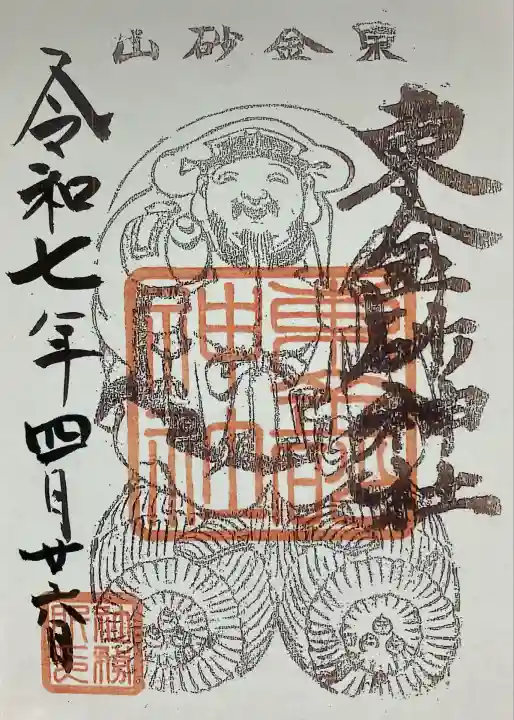 東金砂山
東金砂神社
東金砂
神社
令和七年四月廿六日